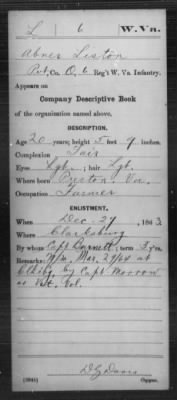 L 6 W.Va.
Abner Liston
Pvt, Co. O, 6 Reg't W. Va. Infantry.
Appears on
Company Descriptive Book
of the organization named above.
DESCRIPTION.
Age 20 years; height 5 feet 9 inches.
Complexion Fair
Eyes Lgt.; hair Lgt.
Where born Preston, Va.
Occupation Farmer
ENLISTMENT.
When Dec. 27, 1863
Where Clarksburg
By whom Capt Barrett; term 3 yrs.
Remarks: Mar. 29/64 at
by Capt Morrow
as Vet. Vol.
D G Davis
Copyist.